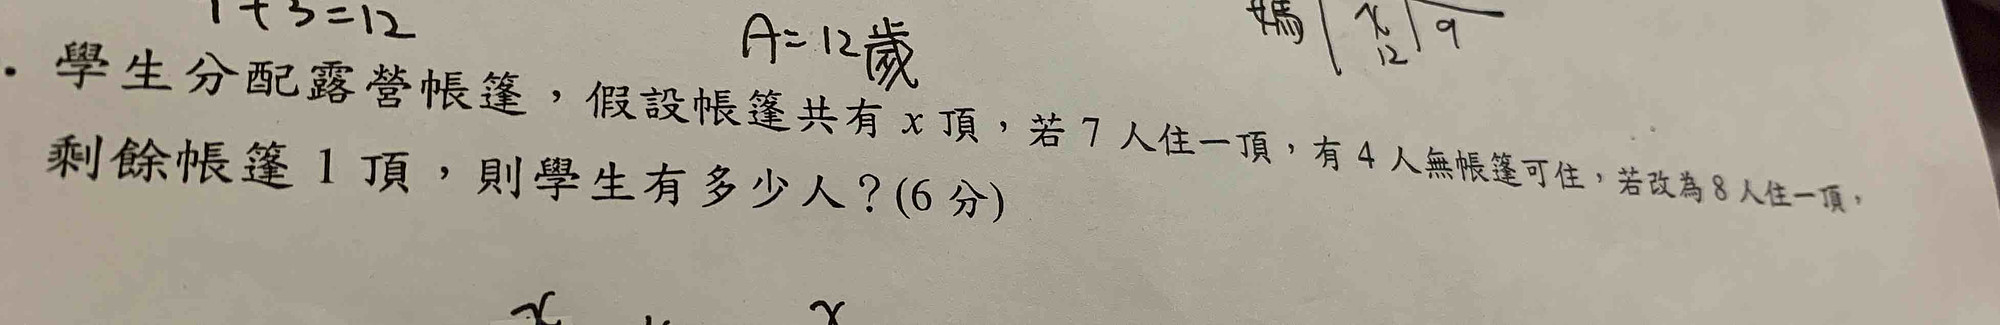 1+3=12
A=12歲
媽 x 9
12
學生分配露營帳篷，假設帳篷共有 x 頂，若 7 人住一頂，有 4 人無帳篷可住，若改為 8 人住一頂，
剩餘帳篷 1 頂，則學生有多少人？(6 分)
x x